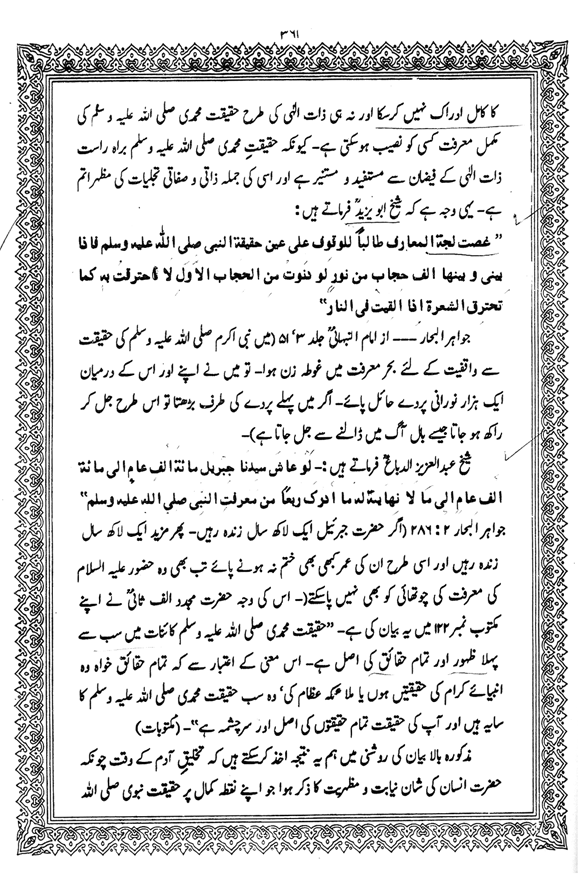 ۳۶۱
کا کامل ادراک نہیں کرسکا اور نہ ہی ذات الٰہی کی طرح حقیقت محمدی صلی اللہ علیہ وسلم کی
مکمل معرفت کسی کو نصیب ہوسکتی ہے۔ کیونکہ حقیقتِ محمدی صلی اللہ علیہ وسلم براہ راست
ذات الٰہی کے فیضان سے مستفید و مستنیر ہے اور اسی کی جملہ ذاتی و صفاتی تجلیات کی مظہر اتم
ہے۔ یہی وجہ ہے کہ شیخ ابو یزیدؒ فرماتے ہیں:
"غصت لجة المعارف طالباً للوقوف على عين حقيقة النبى صلى الله عليه وسلم فاذا
بينى و بينها الف حجاب من نور لو دنوت من الحجاب الاول لا حترقت به كما
تحترق الشعرة اذا القيت فى النار"
جواہر البحار --- از امام النبہانیؒ جلد ۳، ۵۱ (میں نبی اکرم صلی اللہ علیہ وسلم کی حقیقت
سے واقفیت کے لئے بحر معرفت میں غوطہ زن ہوا۔ تو میں نے اپنے اور اس کے درمیان
ایک ہزار نورانی پردے حائل پائے۔ اگر میں پہلے پردے کی طرف بڑھتا تو اس طرح جل کر
راکھ ہو جاتا جیسے بال آگ میں ڈالنے سے جل جاتا ہے)۔
شیخ عبدالعزیز الدباغؒ فرماتے ہیں:۔ لو عاش سيدنا جبريل مائة الف عام الى مائة
الف عام الى ما لا نهاية له ما ادرك ربعاً من معرفت النبى صلى الله عليه وسلم"
جواہر البحار ۲: ۲۸۶ (اگر حضرت جبرئیل ایک لاکھ سال زندہ رہیں۔ پھر مزید ایک لاکھ سال
زندہ رہیں اور اسی طرح ان کی عمر کبھی بھی ختم نہ ہونے پائے تب بھی وہ حضور علیہ السلام
کی معرفت کی چوتھائی کو بھی نہیں پاسکتے)۔ اس کی وجہ حضرت مجدد الف ثانیؒ نے اپنے
مکتوب نمبر ۱۲۲ میں یہ بیان کی ہے۔ "حقیقت محمدی صلی اللہ علیہ وسلم کائنات میں سب سے
پہلا ظہور اور تمام حقائق کی اصل ہے۔ اس معنی کے اعتبار سے کہ تمام حقائق خواہ وہ
انبیائے کرام کی حقیقتیں ہوں یا ملائکہ عظام کی، وہ سب حقیقت محمدی صلی اللہ علیہ وسلم کا
سایہ ہیں اور آپ کی حقیقت تمام حقیقتوں کی اصل اور سرچشمہ ہے"۔ (مکتوبات)
مذکورہ بالا بیان کی روشنی میں ہم یہ نتیجہ اخذ کرسکتے ہیں کہ تخلیقِ آدم کے وقت چونکہ
حضرت انسان کی شان نیابت و مظہریت کا ذکر ہوا جو اپنے نقطہ کمال پر حقیقت نبوی صلی اللہ